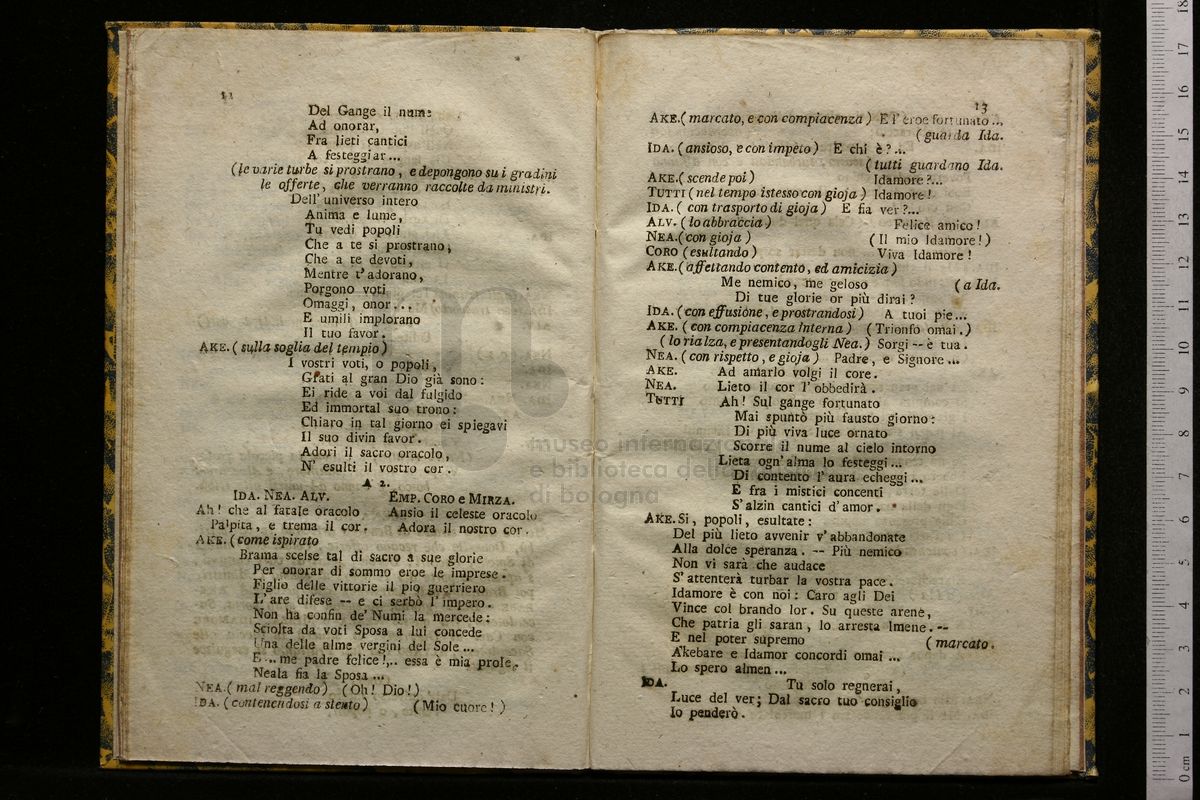 12
Del Gange il nume
Ad onorar,
Fra lieti cantici
A festeggiar...
(le varie turbe si prostrano, e depongono sui gradini
le offerte, che verranno raccolte da ministri.
Dell' universo intero
Anima e lume,
Tu vedi popoli
Che a te si prostrano,
Che a te devoti,
Mentre t'adorano,
Porgono voti
Omaggi, onor...
E umili implorano
Il tuo favor.
AKE. (sulla soglia del tempio)
I vostri voti, o popoli,
Grati al gran Dio già sono:
Ei ride a voi dal fulgido
Ed immortal suo trono:
Chiaro in tal giorno ei spiegavi
Il suo divin favor.
Adori il sacro oracolo,
N' esulti il vostro cor.
A 2.
IDA. NEA. ALV. EMP. CORO e MIRZA.
Ah! che al fatale oracolo Ansio il celeste oracolo
Palpita, e trema il cor. Adora il nostro cor.
AKE. (come ispirato
Brama scelse tal dì sacro a sue glorie
Per onorar di sommo eroe le imprese.
Figlio delle vittorie il pio guerriero
L'are difese -- e ci serbò l'impero.
Non ha confin de' Numi la mercede:
Sciolta da voti Sposa a lui concede
Una delle alme vergini del Sole...
E... me padre felice!... essa è mia prole,
Neala fia la Sposa...
NEA. (mal reggendo) (Oh! Dio!)
IDA. (contenendosi a stento) (Mio cuore!)
13
AKE. (marcato, e con compiacenza) E l'eroe fortunato...
(guarda Ida.
IDA. (ansioso, e con impeto) E chi è?...
(tutti guardano Ida.
AKE. (scende poi) Idamore?...
TUTTI (nel tempo istesso con gioja) Idamore!
IDA. (con trasporto di gioja) E fia ver?...
ALV. (lo abbraccia) Felice amico!
NEA. (con gioja) (Il mio Idamore!)
CORO (esultando) Viva Idamore!
AKE. (affettando contento, ed amicizia)
Me nemico, me geloso (a Ida.
Di tue glorie or più dirai?
IDA. (con effusione, e prostrandosi) A tuoi pie...
AKE. (con compiacenza interna) (Trionfo omai.)
(lo rialza, e presentandogli Nea.) Sorgi -- è tua.
NEA. (con rispetto, e gioja) Padre, e Signore...
AKE. Ad amarlo volgi il core.
NEA. Lieto il cor l'obbedirà.
TUTTI Ah! Sul gange fortunato
Mai spuntò più fausto giorno:
Di più viva luce ornato
Scorre il nume al cielo intorno
Lieta ogn'alma lo festeggi...
Di contento l'aura echeggi...
E fra i mistici concenti
S'alzin cantici d'amor.
AKE. Si, popoli, esultate:
Del più lieto avvenir v'abbandonate
Alla dolce speranza. -- Più nemico
Non vi sarà che audace
S'attenterà turbar la vostra pace.
Idamore è con noi: Caro agli Dei
Vince col brando lor. Su queste arene,
Che patria gli saran, lo arresta Imene. --
E nel poter supremo (marcato.
Akebare e Idamor concordi omai...
Lo spero almen...
IDA. Tu solo regnerai,
Luce del ver; Dal sacro tuo consiglio
Io penderò.
museo internazi
e biblioteca della
di bologna